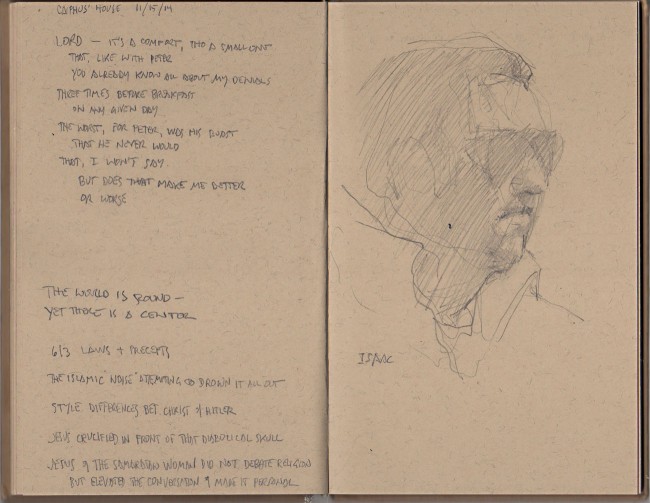 CAPHUS' HOUSE 11/15/14
LORD — IT'S A COMFORT, THO A SMALL ONE
THAT, LIKE WITH PETER
YOU ALREADY KNOW ALL ABOUT MY DENIALS
THREE TIMES BEFORE BREAKFAST
ON ANY GIVEN DAY
THE WORST, FOR PETER, WAS HIS BOAST
THAT HE NEVER WOULD
THAT, I WON'T SAY.
BUT DOES THAT MAKE ME BETTER
OR WORSE
THE WORLD IS ROUND —
YET THERE IS A CENTER
613 LAWS + PRECEPTS
THE ISLAMIC "NOISE" ATTEMPTING TO DROWN IT ALL OUT
STYLE DIFFERENCES BET. CHRIST & HITLER
JESUS CRUCIFIED IN FRONT OF THAT DIABOLICAL SKULL
JESUS & THE SAMARATAN WOMAN DID NOT DEBATE RELIGION
BUT ELEVATED THE CONVERSATION & MAKE IT PERSONAL
ISAAC